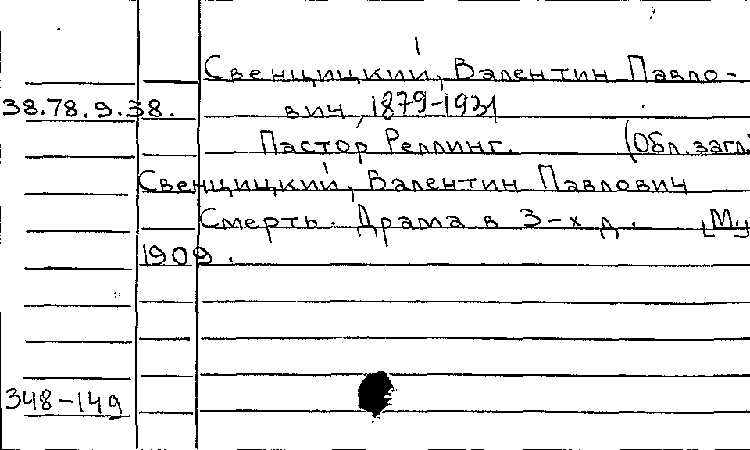 Свенцицкий, Валентин Павло-
38.78.9.38. вич, 1879-1931
Пастор Реллинг. (Обл. загл.
Свенцицкий, Валентин Павлович
Смерть. Драма в 3-х д. [Му
1909.
348-149